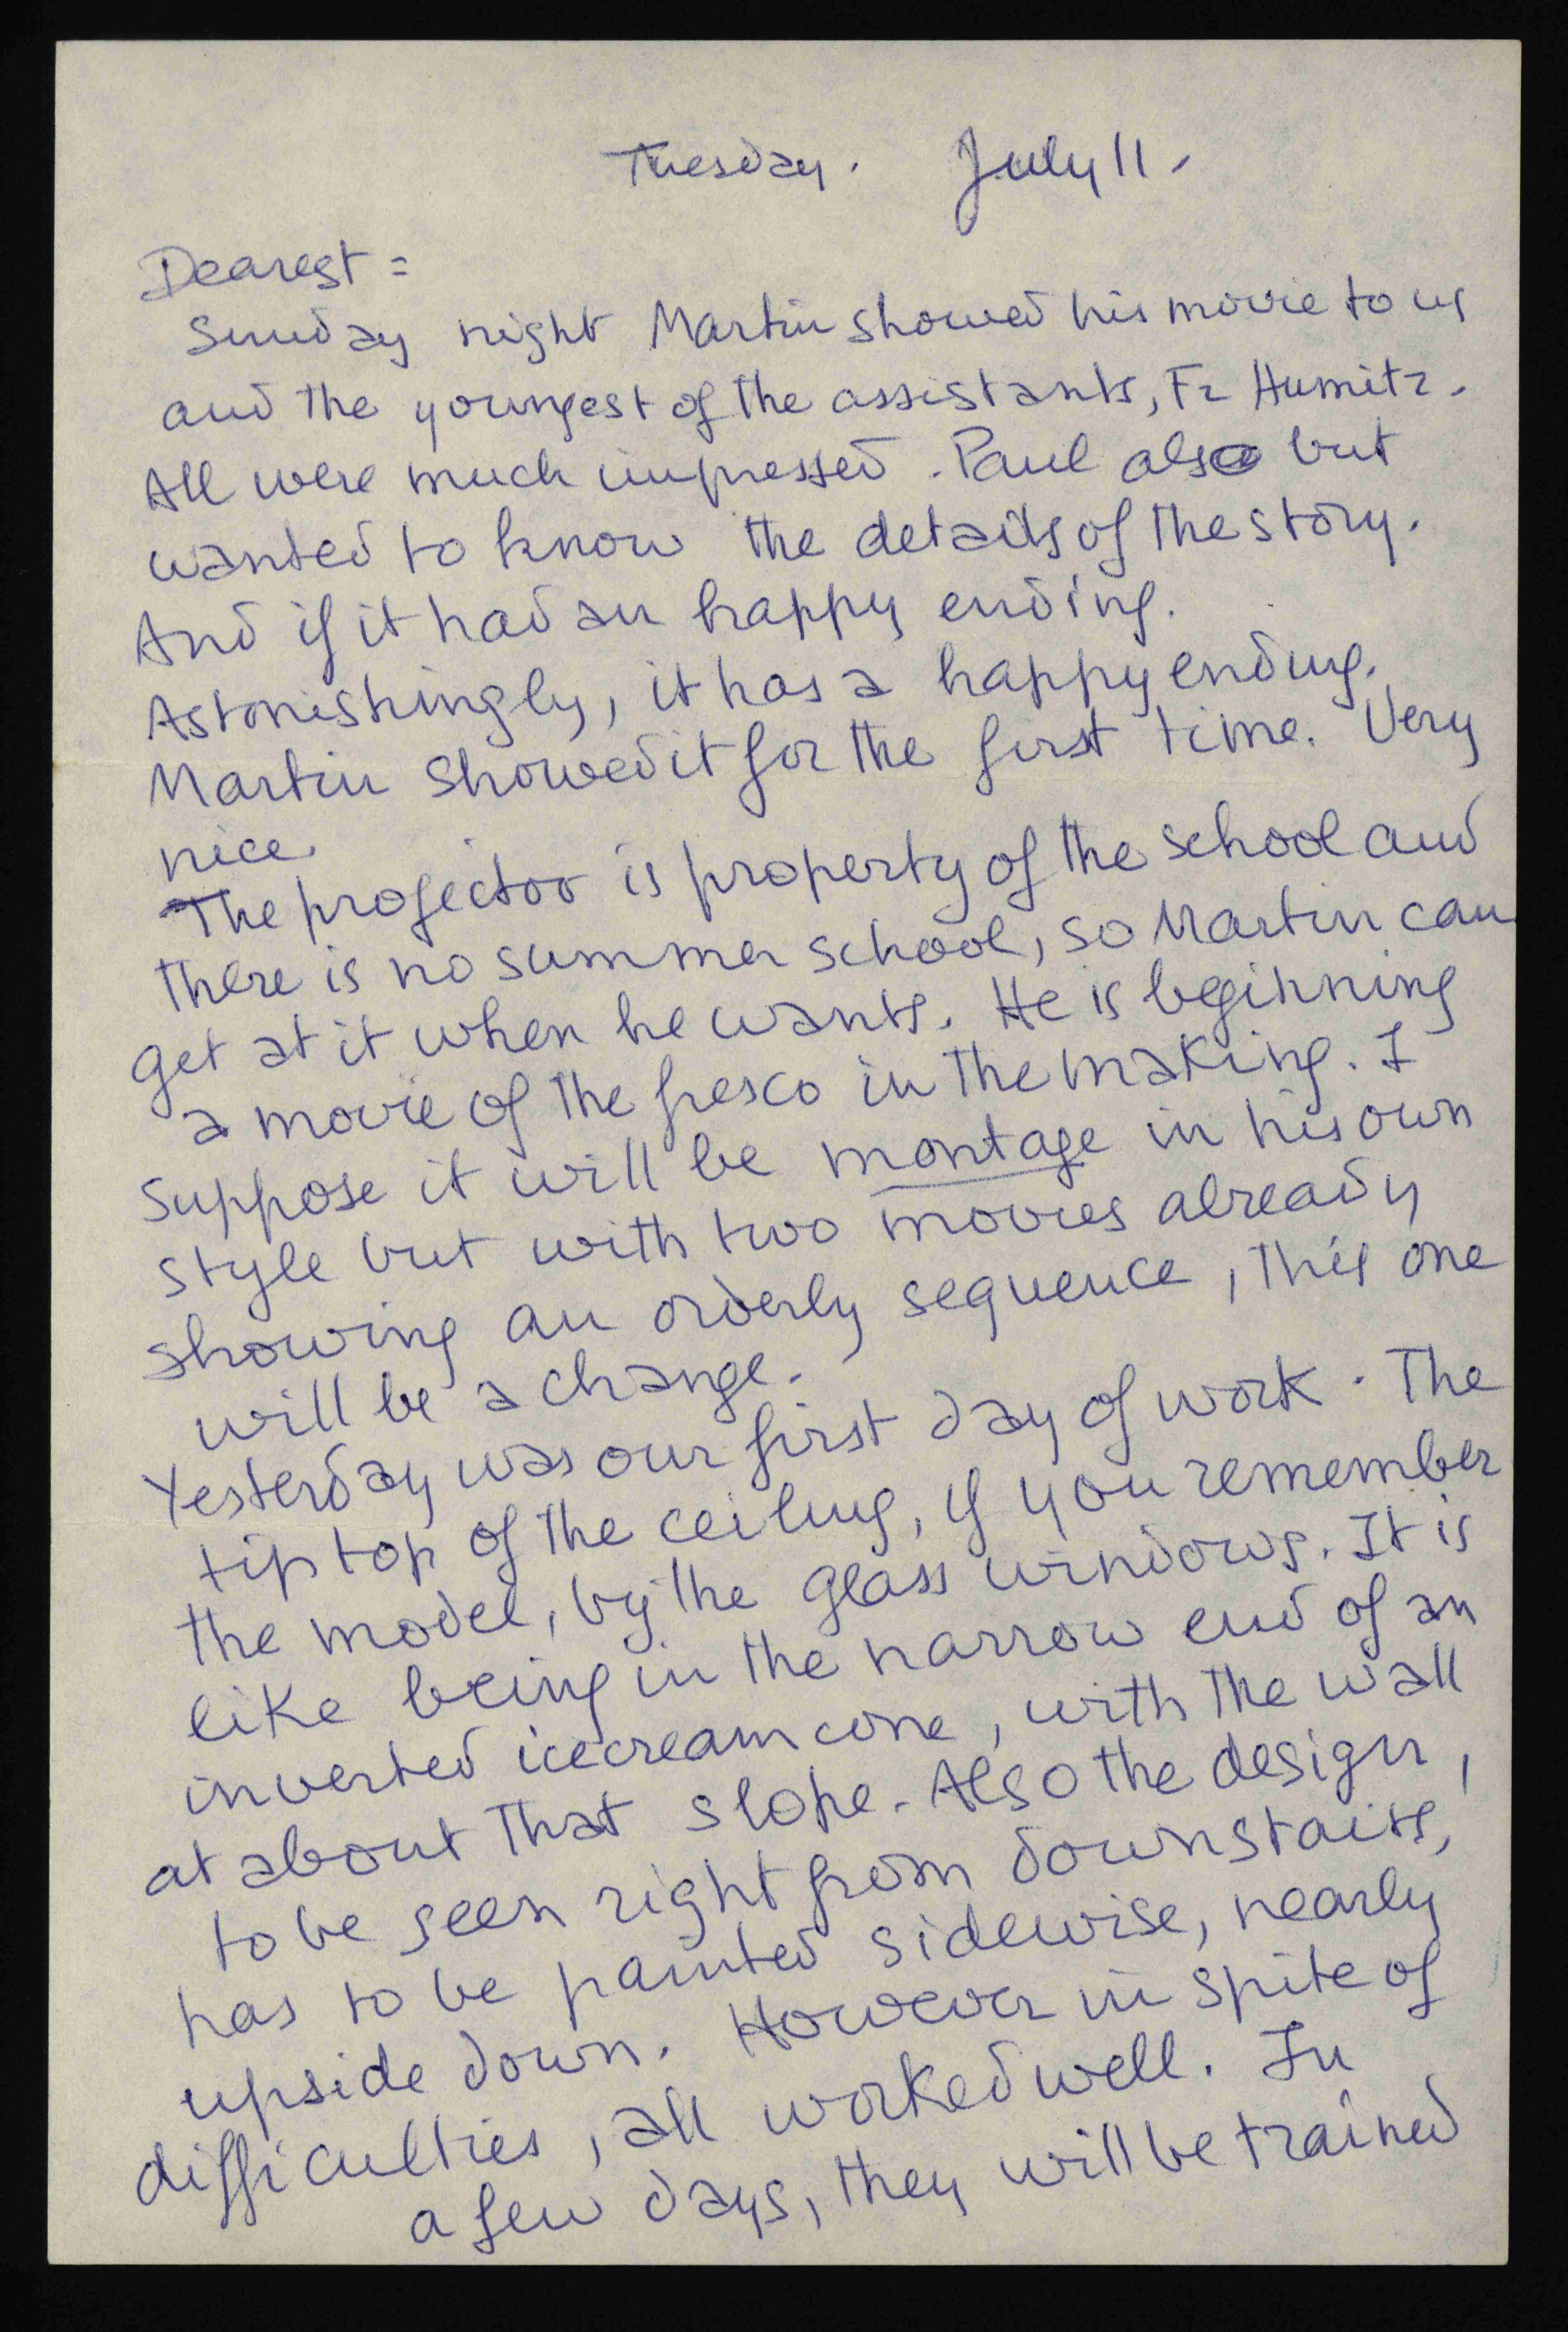 Tuesday. July 11.
Dearest =
Sunday night Martin showed his movie to us
and the youngest of the assistants, Fr Humitz.
All were much impressed. Paul also but
wanted to know the details of the story.
And if it had an happy ending.
Astonishingly, it has a happy ending.
Martin showed it for the first time. Very
nice.
The projector is property of the school and
there is no summer school, so Martin can
get at it when he wants. He is beginning
a movie of the fresco in the making. I
suppose it will be montage in his own
style but with two movies already
showing an orderly sequence, this one
will be a change.
Yesterday was our first day of work. The
tip top of the ceiling, if you remember
the model, by the glass windows. It is
like being in the narrow end of an
inverted icecream cone, with the wall
at about that slope. Also the design,
to be seen right from downstairs,
has to be painted sidewise, nearly
upside down. However in spite of
difficulties, all worked well. In
a few days, they will be trained